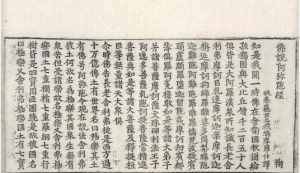 佛說阿彌陀經
姚秦三藏法師鳩摩羅什譯
如是我聞一時佛在舍衛國祇樹給孤
獨園與大比丘僧千二百五十人
俱皆是大阿羅漢衆所知識長老舍
利弗摩訶目乾連摩訶迦葉摩訶迦
栴延摩訶拘絺羅離婆多周梨槃陀
迦難陀阿難陀羅睺羅憍梵波提賓
頭盧頗羅墮迦留陀夷摩訶劫賓那
薄俱羅阿㝹樓馱如是等諸大弟子
并諸菩薩摩訶薩文殊師利法王子
阿逸多菩薩乾陀訶提菩薩常精進
菩薩與如是等諸大菩薩及釋提桓
因等無量諸天大衆俱
爾時佛告長老舍利弗從是西方過
十萬億佛土有世界名曰極樂其土
有佛號阿彌陀今現在說法舍利弗
彼土何故名為極樂其國衆生無有
衆苦但受諸樂故名極樂又舍利弗極
樂國土七重欄楯七重羅網七重行
樹皆是四寶周匝圍繞是故彼國名
曰極樂又舍利弗極樂國土有七寶